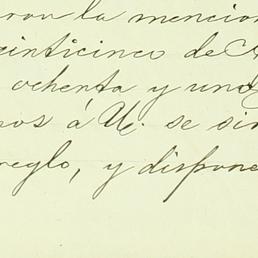 aron la mencion
einticinco de A
ochenta y uno
nos á U. se sir
reglo, y dispone